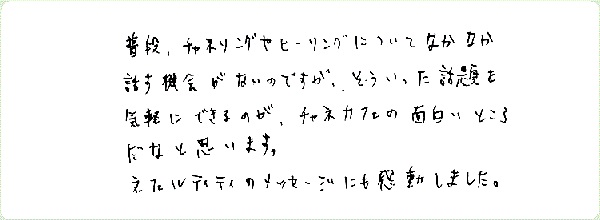 普段、チャネリングやヒーリングについてなかなか
話す機会がないのですが、そういった話題を
気軽にできるのが、チャネカフェの面白いところ
だなと思います。
ネフェルティティのメッセージにも感動しました。